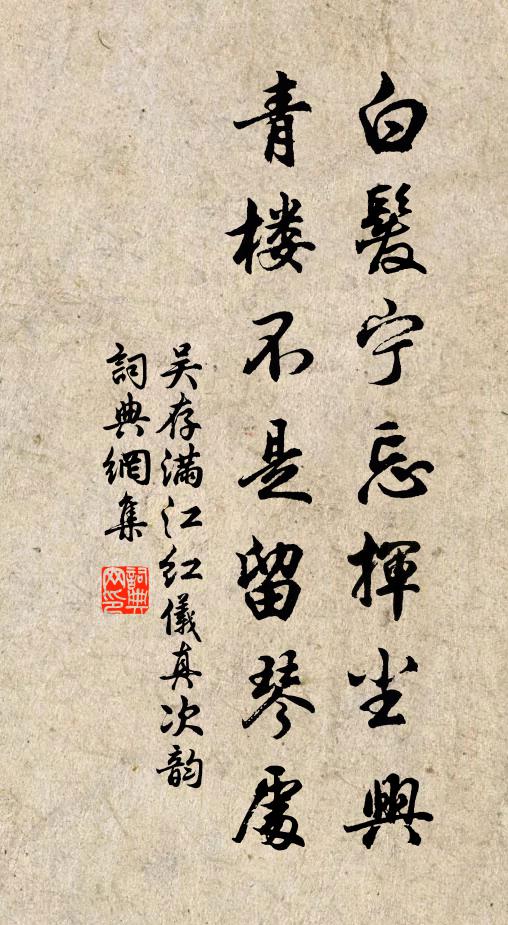 白髮宁忘揮尘興
青楼不是留琴處
吴存满江红儀真次韵
詞典網集
詞典网印